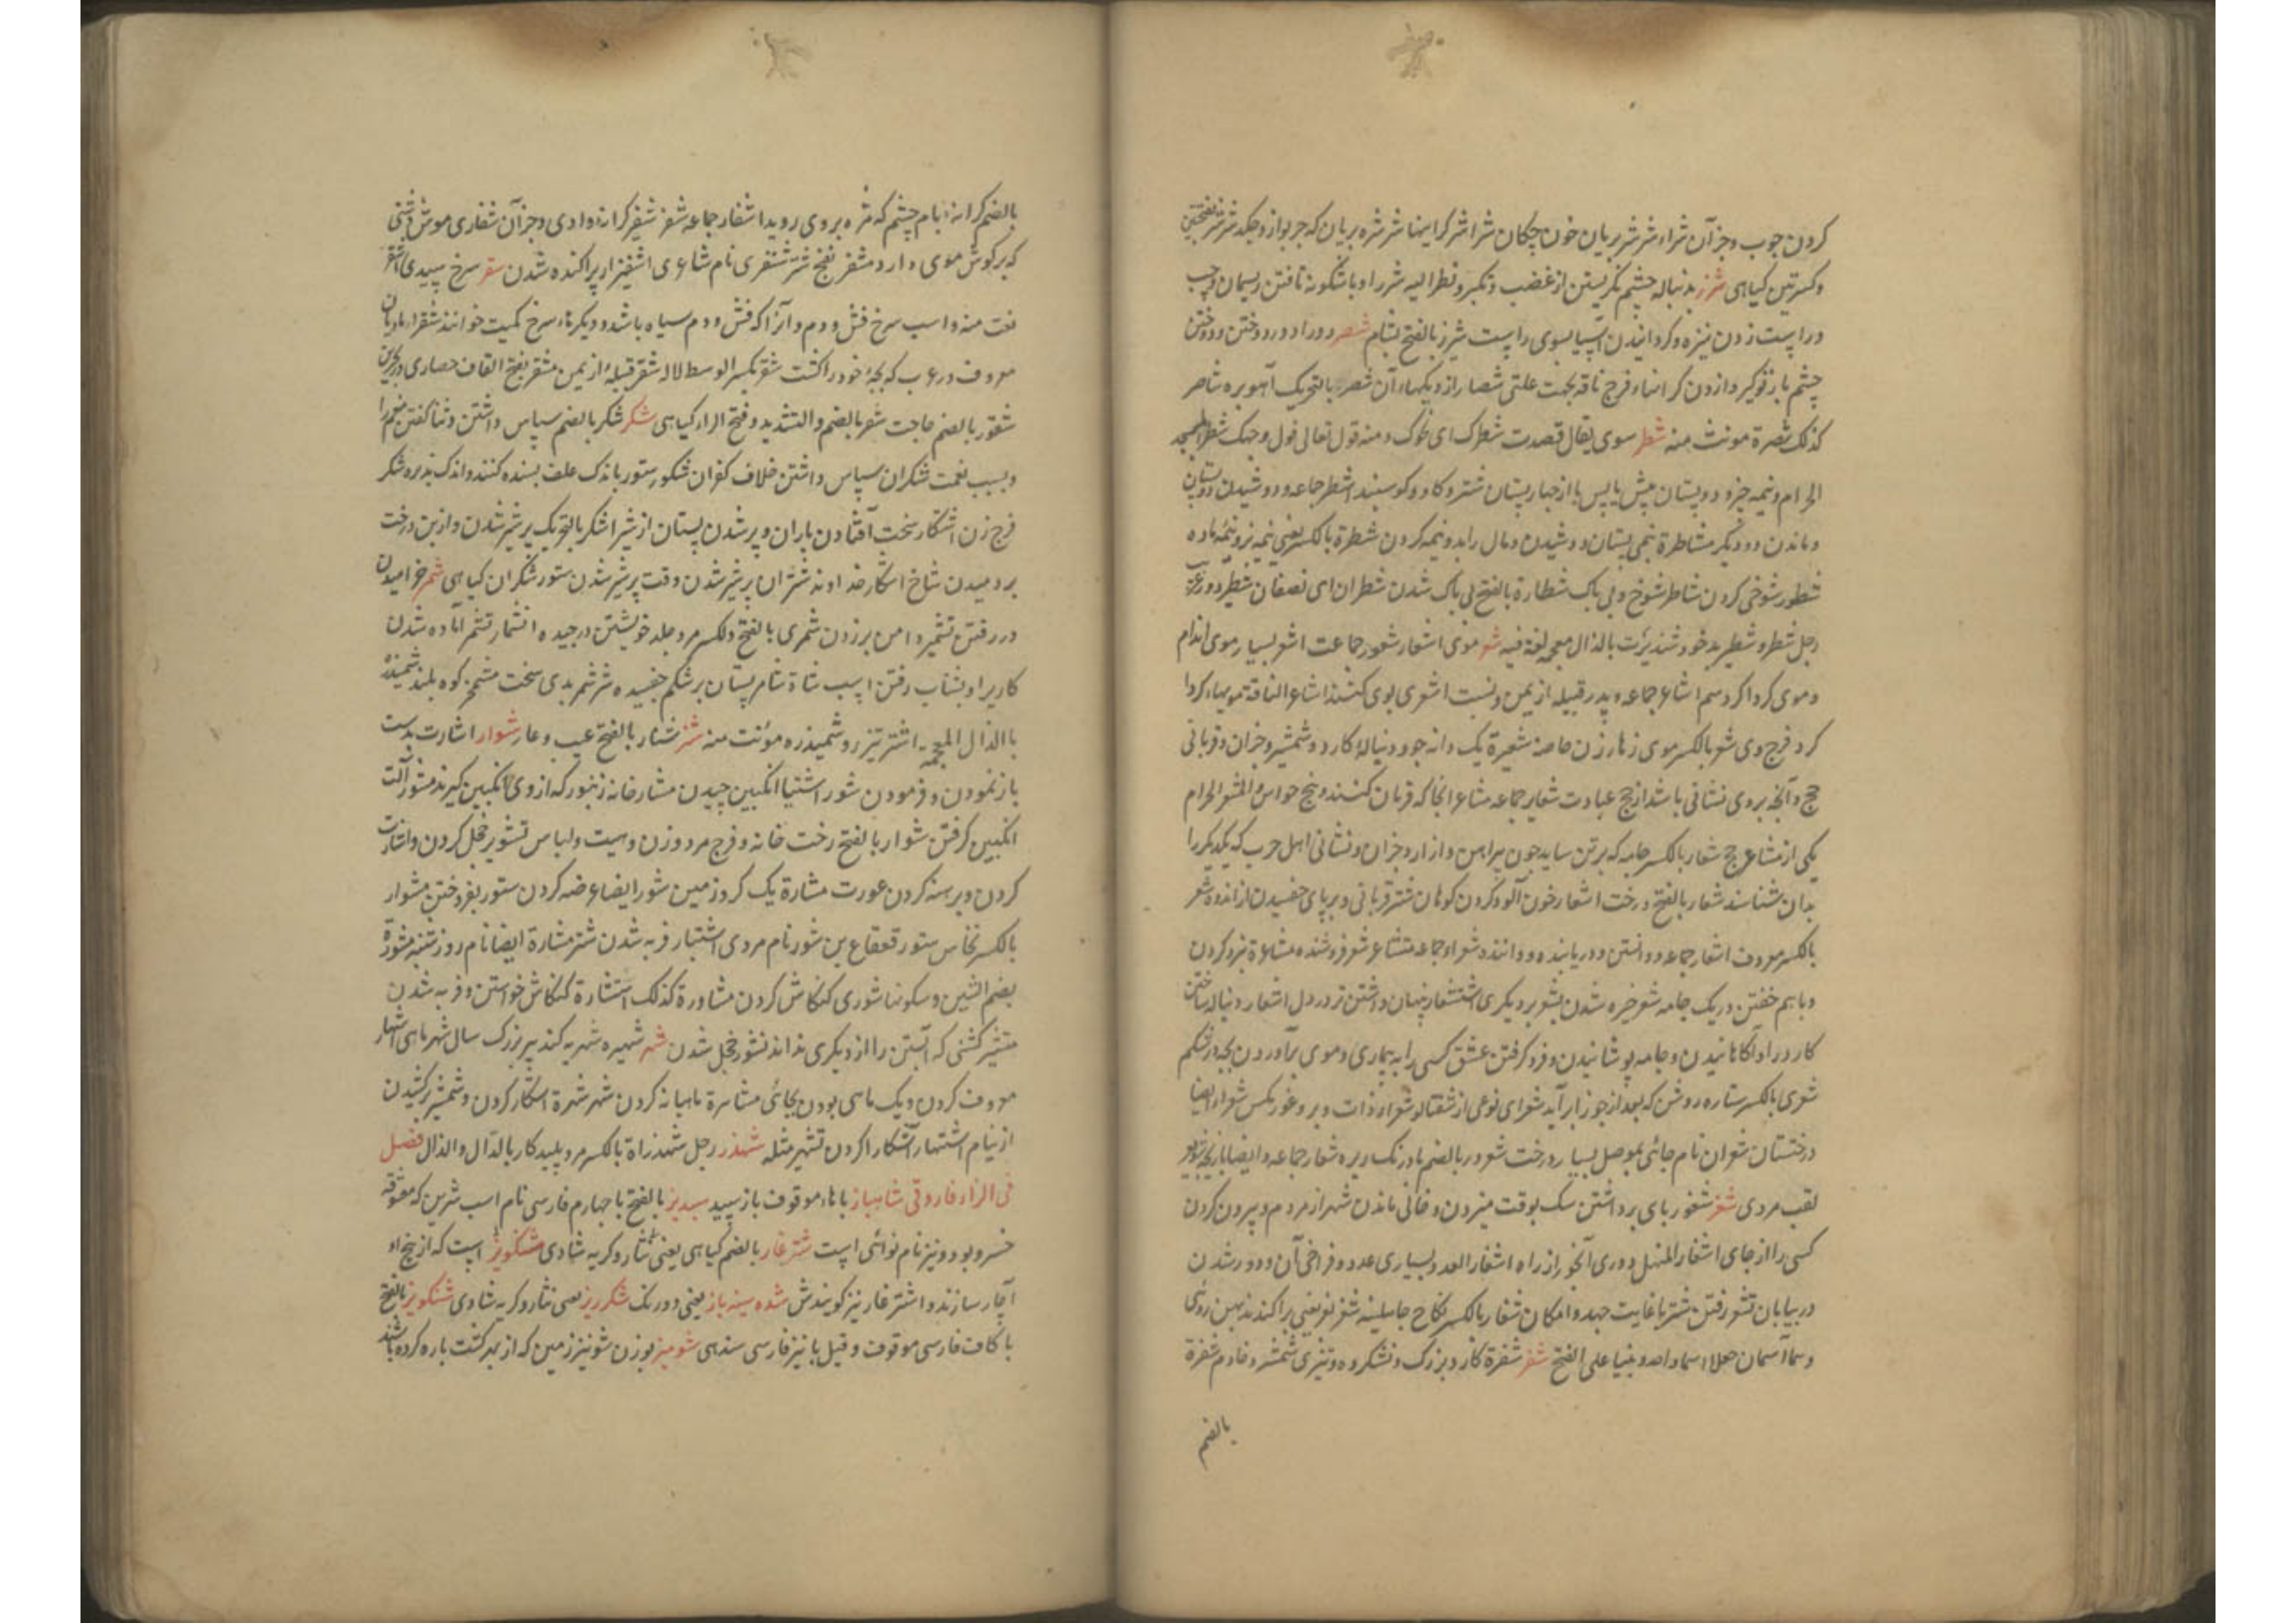 کردن چوب وجز آن شراء شرشر بریان خون چکان شراشر کرانها شرشره بریان که چربو ازو چکد شرشر بفتحتین
وکسرتین کیاهی شزر بدنباله چشم نکریستن از غضب وتکبر ونظر الیه شزرا وباشکونه تافتن ریسمان وچپ
وراست زدن نیزه وکردانیدن آسیا بسوی راست شیزر بالفتح بشام شصر دور ادور دوختن ودوختن
چشم باز وفرج ناقه بجهت علتی شصار از دیکهاء آن شصر بالتحریک آهو بره شاصر
کذلک شصرة مونث منه شطر سوی یقال قصدت شطرک ای نحوک ومنه قوله تعالی فول وجهک شطر المسجد
الحرام ونیمه چیز ودو پستان پیش یا پس یا از چهار پستان شتر وکاو وکوسپند اشطر جماعه ودوشیدن دو پستان
وماندن دو دیکر مشاطرة نیمی پستان دوشیدن ومال را بدو نیمه کردن شطرة بالکسر یعنی نیمه نر ونیمه ماده
شطور شوخی کردن شاطر شوخ وبی باک شطارة بالفتح بی باک شدن شطران ای نصفان شطیر دور وغریب
رجل شطر وشطیر بدخو شنذیرت بالذال معجمه لغة فیه شعر موی اشعار شعور جماعت اشعر بسیار موی اندام
وموی کرداکرد سم اشاعر جماعه وپدر قبیله از یمن ونسبت اشعری بوی کنند اشاعر الناقة مویهاء کردا
کرد فرج وی شعر بالکسر موی زهار زن خاصة شعیرة یک دانه جو ودنباله کارد وشمشیر وجز آن وقربانی
حج وآنچه بر وی نشانی باشد از حج عبادت شعایر جماعه مشاعر آنجا که قربان کنند وپنج حواس المشعر الحرام
یکی از مشاعر حج شعار بالکسر جامه که برتن ساید چون پیراهن وازار وجز آن ونشانی اهل حرب که یکدیکر را
بدان شناسند شعار بالفتح درخت اشعار خون آلود کردن کوهان شتر قربانی وبرپای خفسیدن از اندوه شعر
بالکسر معروف اشعار جماعه ودانستن ودریابنده ودانند شعراء جماعه متشاعر شعر فروشنده مشاعرة نبرد کردن
وباهم خفتن در یک جامه شعر خیره شدن بشعر بر دیکری استشعار نهان داشتن ترس در دل اشعار دنباله ساختن
کارد را وآکاهانیدن وجامه پوشانیدن وفرو کرفتن عشق کسی را به بیماری وموی برآوردن بچه در شکم
شعری بالکسر ستاره روشن که بعد از جوزا برآید شعرای نوعی از شفتالو
درختستان شعران نام جائی بموصل بسیار درخت شعرور بالضم بادرنک ریزه شعاریر جماعه وایضا بازیچه
لقب مردی شغر شغور پای برداشتن سک بوقت میزدن وخالی ماندن شهر از مردم وبیرون کردن
کسی را از جای اشغار المنهل دوری آبخور از راه اشغار العدد بسیاری عدد وفراخی آن ودور شدن
در بیابان تشغر رفتن شتر باغایت جهد وامکان شغار بالکسر نکاح جاهلیة شغر بغر یعنی پراکنده
وهما اسمان جعلا اسما واحدا وبنیا علی الفتح شفر شفرة کارد بزرک ونشکرده وتیزی شمشیر وخادم شفرة
بالضم
بالضم کرانه بام چشم که مژه بر وی روید اشفار جماعه شفر شفیر کرانه وادی وجز آن شفاری موش دشتی
که بر کوش موی دارد مشفر بفتح شتر شنفری نام شاعری اشفترار پراکنده شدن سقر سرخ سپیدی اشقر
نعت منه واسب سرخ فش ودم وآنرا که فش ودم سیاه باشد ودیکر تن سرخ کمیت خوانند شقرا مادیان
معروف در عرب که بچه خود را کشت شقر بکسر الوسط لاله شقر قبیله از یمن مشقر بفتح القاف حصاری در بحرین
شقور بالضم حاجت شقر بالضم والتشدید وفتح الراء کیاهی شکر شکر بالضم سپاس داشتن وثنا کفتن منعم را
وبسبب نعمت شکران سپاس داشتن خلاف کفران شکور ستور باندک علف بسنده کننده واندک پذیره شکر
فرج زن اشتکار سخت افتادن باران وپر شدن پستان از شیر اشکر بالتحریک پر شیر شدن واز بن درخت
بر دمیدن شاخ اشکار خداوند شتران پر شیر شدن وقت پر شیر شدن ستور شکران کیاهی شمر خرامیدن
در رفتن تشمیر دامن بر زدن شمری بالفتح والکسر مرد جلد خویشتن در چیده انشمار تشمر آماده شدن
کاریرا وبشتاب رفتن اسب شاة شامر پستان بر شکم خفسیده شر شمر بدی سخت مشمخر کوه بلند شمیذر
باالذال المعجمه اشتر تیزرو شمیذره مونث منه شنر شنار بالفتح عیب وعار شوار اشارت بدست
باز نمودن وفرمودن شور اشتیا انکبین چیدن مشار خانه زنبور که از وی انکبین کیرند مشور آلت
انکبین کرفتن شوار بالفتح رخت خانه وفرج مرد وزن وهیت ولباس تشویر خجل کردن واشارت
کردن وبرهنه کردن عورت مشارة یک کرد زمین شور ایضا عرضه کردن ستور بفروختن مشوار
بالکسر نخاس ستور قعقاع بن شور نام مردی اشتبار فربه شدن شتر مشارة ایضا نام روز شنبه مشورة
بضم الشین وسکونها شوری کنکاش کردن مشاورة کذلک استشارة کنکاش خواستن وفربه شدن
مستشیر کشنی که آبستن را از دیکری بداند تشور خجل شدن شهر شهیره شهربه کنده پیر بزرک سال شهر ماهی اشهار
معروف کردن ویک ماهی بودن بجائی مشاهرة ماهیانه کردن شهر شهرة اشکار کردن وشمشیر کشیدن
از نیام اشتهار آشکارا کردن تشهیر مثله شهذر رجل شهذراة بالکسر مرد پلید کار بالدال والذال فصل
فی الزاء فاروقی شاهباز باهاء موقوف باز سپید سبدیز بالفتح با چهارم فارسی نام اسب شیرین که معشوقه
خسرو بود ونیز نام نوائی است شترغار بالضم کیاهی یعنی نثار وکریه شادی مشنکویز است که از بیخ او
آچار سازند واشترغار نیز کویندش شده سینه باز یعنی دورنک شکرریز یعنی نثار وکریه شادی شنکویز بالفتح
باکاف فارسی موقوف وقیل بانیز فارسی سندهی شومیز بوزن شونیز زمین که از بهر کشت پاره کرده باشند